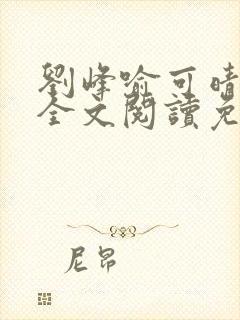 劉峰喻可晴
全文閱讀免
尼昂